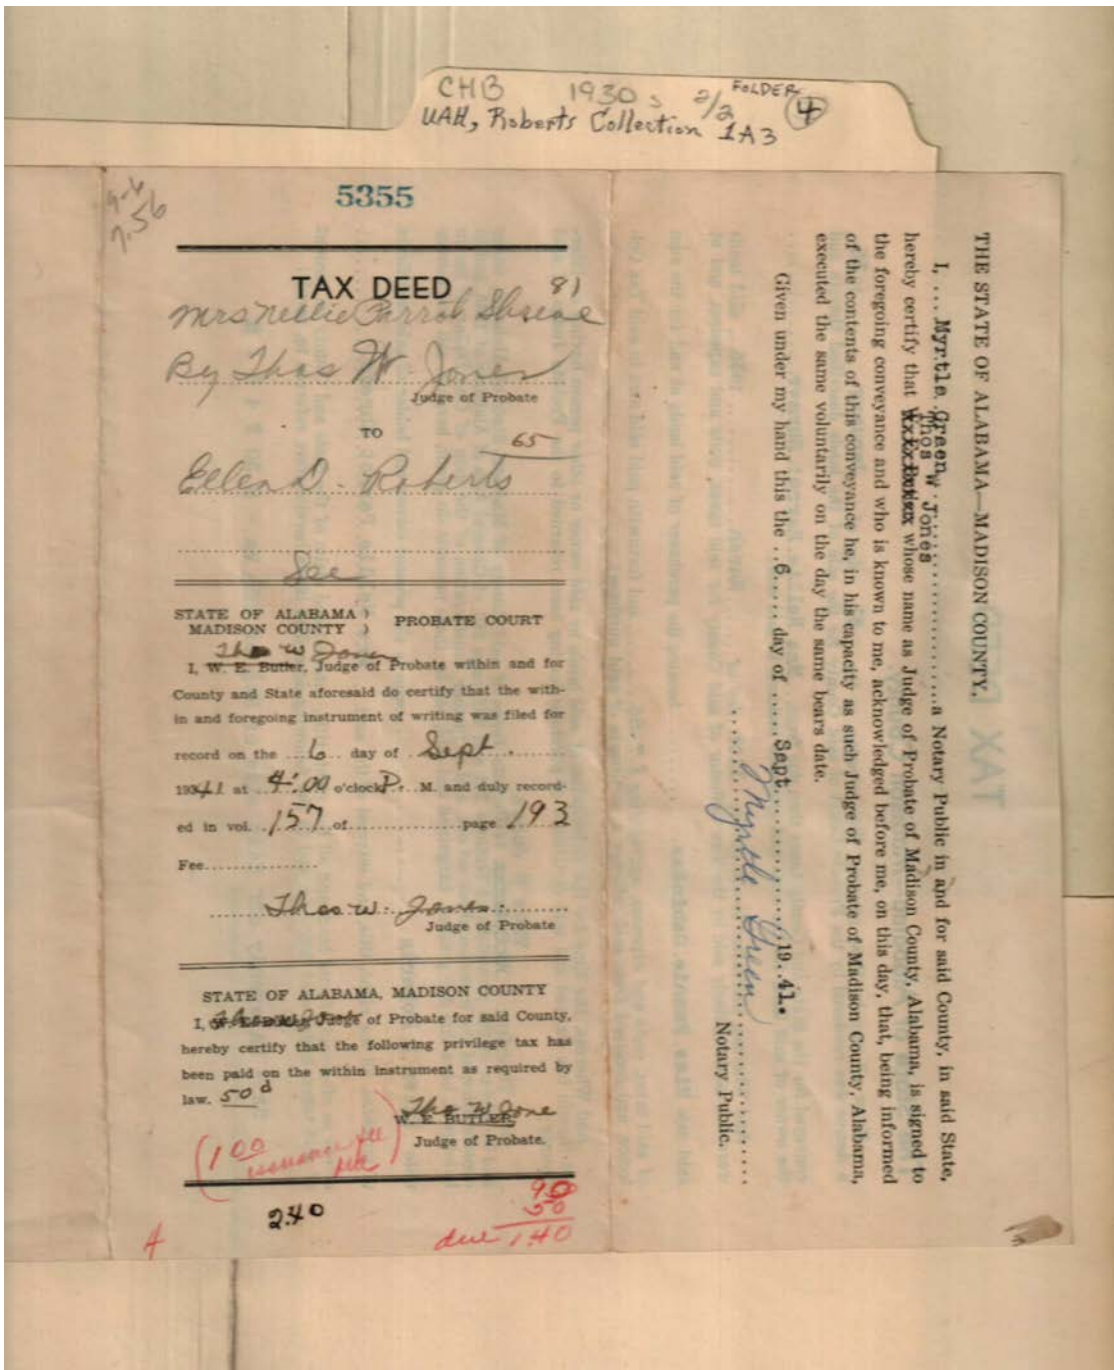 CHB 1930s 2/2 FOLDER 4
UAH, Roberts Collection 1A3
9-6
7.56
5355
TAX DEED 81
Mrs Nellie Parrot
By Thos W. Jones
Judge of Probate
TO 65
Ellen D. Roberts
See
STATE OF ALABAMA )
MADISON COUNTY ) PROBATE COURT
Thos W Jones
I, W. E. Butler, Judge of Probate within and for
County and State aforesaid do certify that the with-
in and foregoing instrument of writing was filed for
record on the ...6... day of ..Sept.........
1941 at ..4:00 o'clock P.. M. and duly record-
ed in vol. ..157..of................page 193
Fee.................
.......Thos W. Jones.........
Judge of Probate
STATE OF ALABAMA, MADISON COUNTY
I, Judge of Probate for said County,
hereby certify that the following privilege tax has
been paid on the within instrument as required by
law. 50
Thos W Jone
W. E. BUTLER
Judge of Probate.
(1 00
issuance fee
)
2.40
90
50
due 1.40
A
THE STATE OF ALABAMA—MADISON COUNTY.
I, ... Myrtle Green...................a Notary Public in and for said County, in said State,
Thos W Jones
hereby certify that whose name as Judge of Probate of Madison County, Alabama, is signed to
the foregoing conveyance and who is known to me, acknowledged before me, on this day, that, being informed
of the contents of this conveyance he, in his capacity as such Judge of Probate of Madison County, Alabama,
executed the same voluntarily on the day the same bears date.
Given under my hand this the ..6..... day of .....Sept................19..41.
Myrtle Green
Notary Public.
TAX DEED